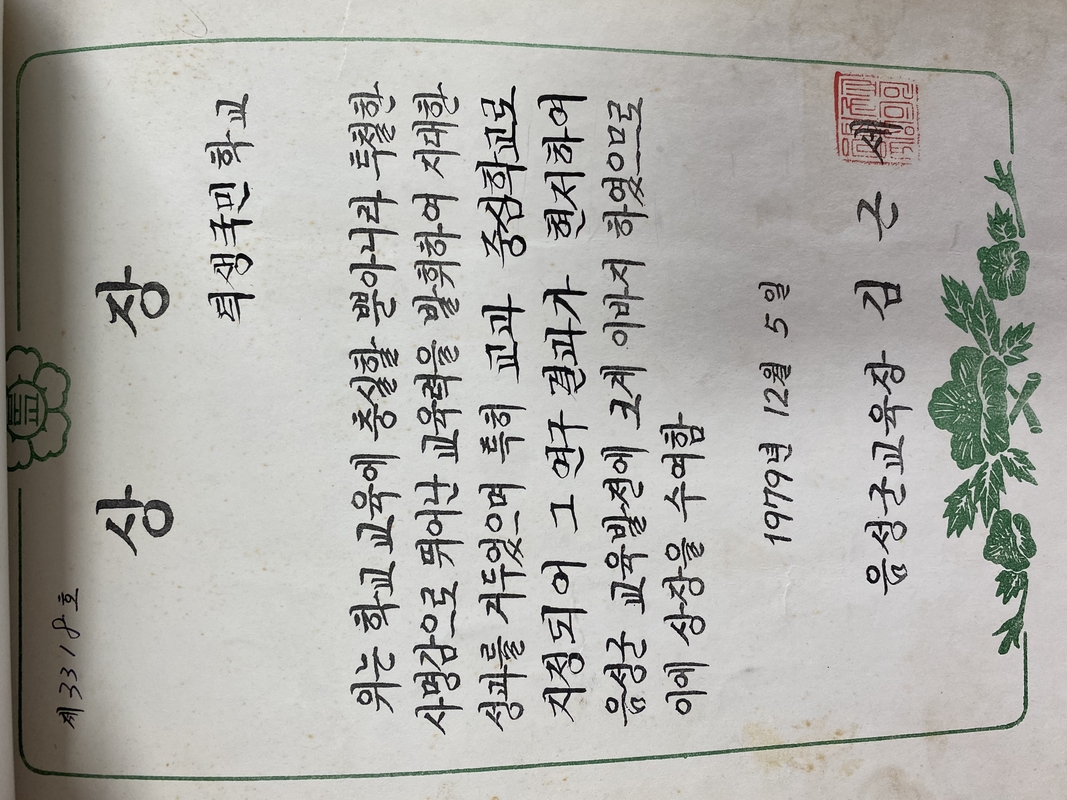 제 3318 호
상 장
퇴생국민학교
위는 학교 교육에 충실할 뿐아니라 투철한
사명감으로 뛰어난 교육력을 발휘하여 지대한
성과를 거두었으며 특히 교과 중심학교로
지정되어 그 연구 결과가 현저하여
음성군 교육발전에 크게 이바지 하였으므로
이에 상장을 수여함
1979년 12월 5일
음성군교육장 김 근 세